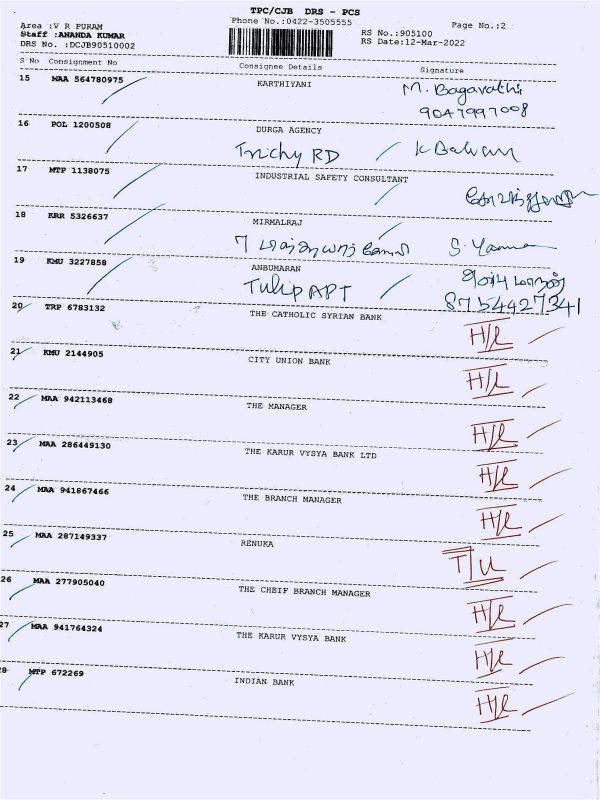 TPC/CJB DRS - PCS
Area :V R PURAM
Phone No.:0422-3505555
Page No.:2
Staff :ANANDA KUMAR
RS No.:905100
DRS No. :DCJB90510002
RS Date:12-Mar-2022
S No Consignment No Consignee Details Signature
15 MAA 564780975 KARTHIYANI M. Bagavathi
9047997008
16 POL 1200508 DURGA AGENCY
Trichy RD
17 MTP 1138075 INDUSTRIAL SAFETY CONSULTANT
18 KRR 5326637 MIRMALRAJ
19 KMU 3227858 ANBUMARAN
Tulip APT 8754427341
20 TRP 6783132 THE CATHOLIC SYRIAN BANK
H/L
21 KMU 2144905 CITY UNION BANK
H/L
22 MAA 942113468 THE MANAGER
H/L
23 MAA 286449130 THE KARUR VYSYA BANK LTD
H/L
24 MAA 941867466 THE BRANCH MANAGER
H/L
25 MAA 287149337 RENUKA
T/U
26 MAA 277905040 THE CHEIF BRANCH MANAGER
H/L
27 MAA 941764324 THE KARUR VYSYA BANK
H/L
28 MTP 672269 INDIAN BANK
H/L